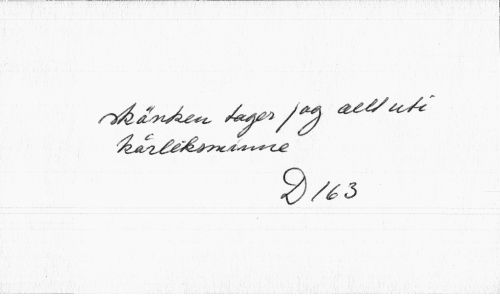 skänken tager jag allt uti
kärleksminne
D 163